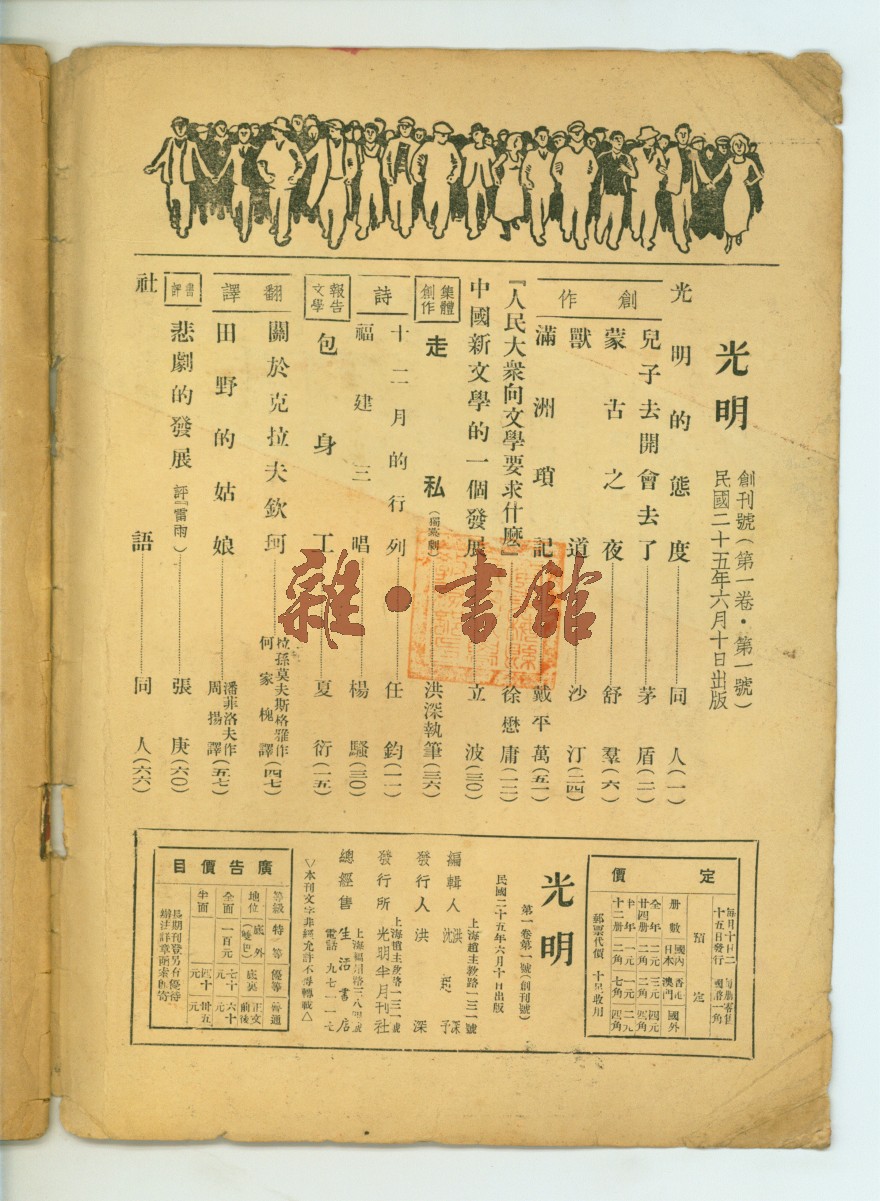 光明
創刊號（第一卷・第一號）
民國二十五年六月十日出版
光明的態度……同人（一）
創作
兒子去開會去了……茅盾（二）
蒙古之夜……舒羣（六）
獸道……沙汀（二四）
滿洲瑣記……戴平萬（五一）
『人民大衆向文學要求什麼』……徐懋庸（一二）
中國新文學的一個發展……立波（三〇）
集體創作
走私（獨幕劇）……洪深執筆（三六）
詩
十二月的行列……任鈞（一一）
福建三唱……楊騷（三〇）
報告文學
包身工……夏衍（一五）
翻譯
關於克拉夫欽珂……拉孫莫夫斯格雅作
何家槐譯（四七）
田野的姑娘……潘菲洛夫作
周揚譯（五七）
書評
悲劇的發展 評『雷雨』……張庚（六〇）
社語……同人（六六）
雜・書館
定價
預定
每月十日二十五日發行
冊數 國內日本 香港澳門 國外
全年廿四冊
郵票代價 十足收用
光明
第一卷第一號（創刊號）
民國二十五年六月十日出版
上海趙主教路一三一號
編輯人 洪深 沈起予
發行人 洪深
上海趙主教路一三一號
發行所 光明半月刊社
總經售 生活書店
▽本刊文字非經允許不得轉載△
廣告價目
等級 特等 優等 普通
地位 底外 底裏 正文前後
全面 一百元 七十元 六十元
半面 四十元 卅五元